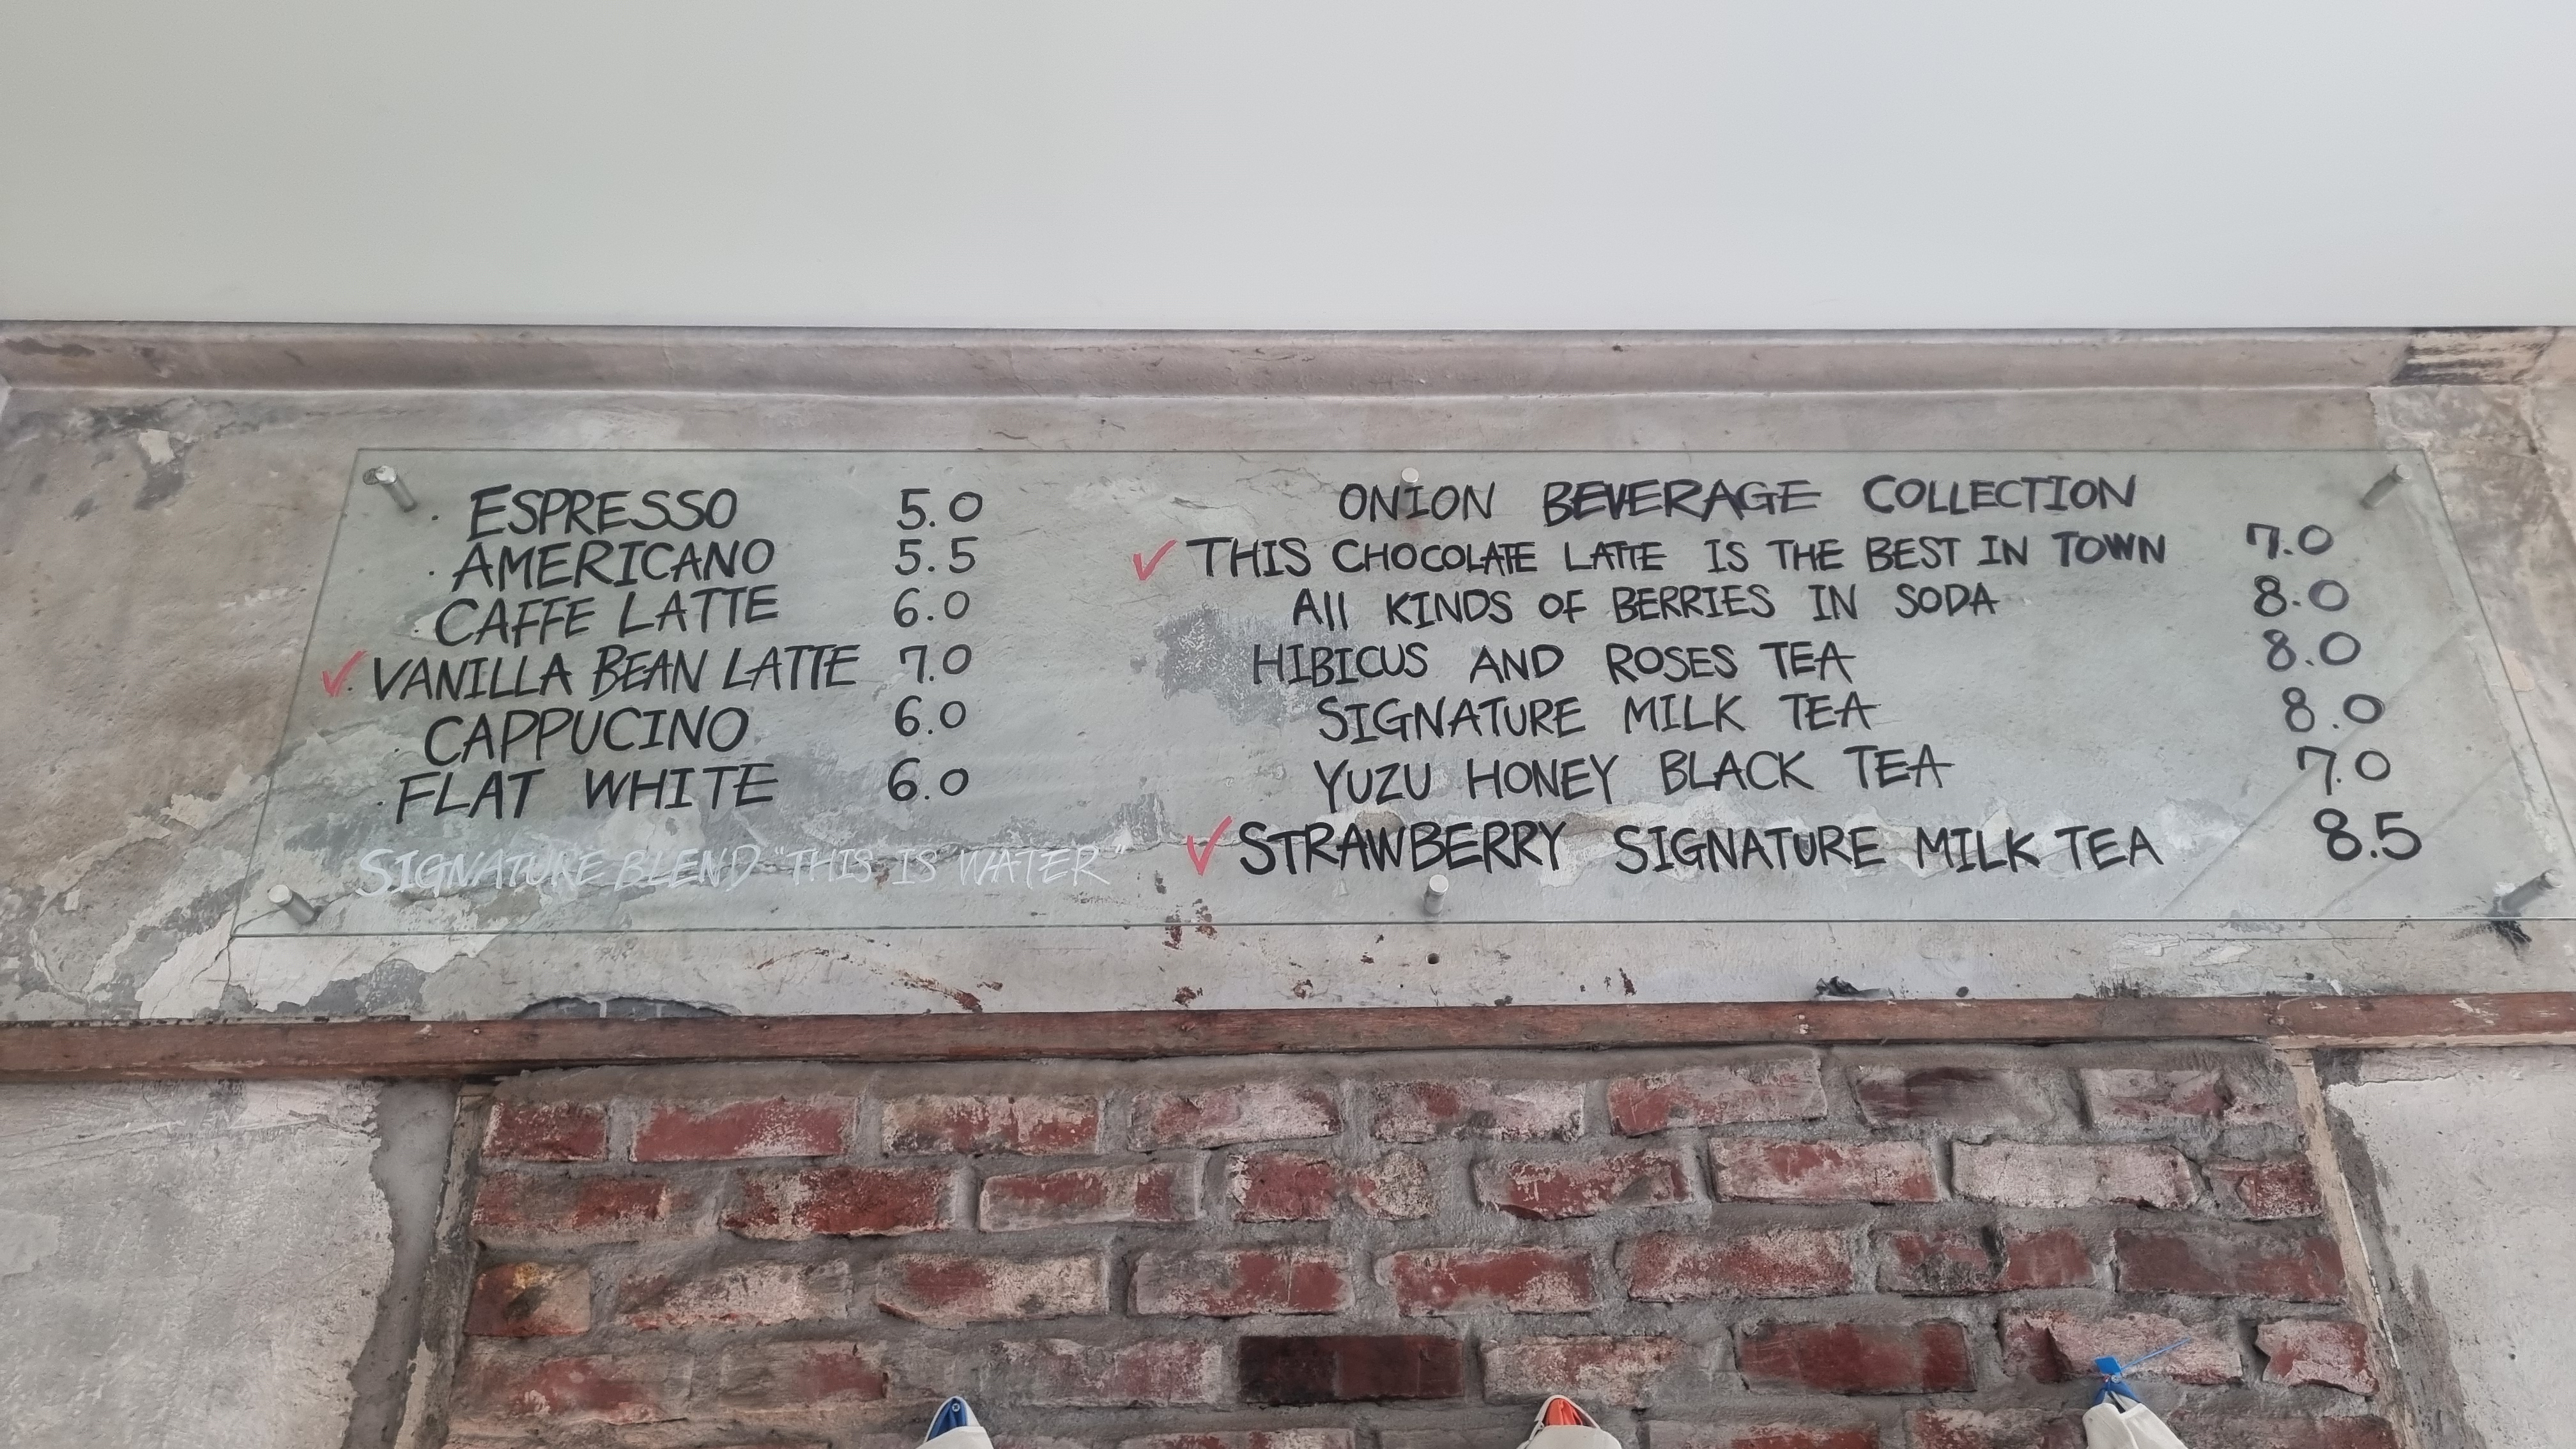 . ESPRESSO 5.0
. AMERICANO 5.5
. CAFFE LATTE 6.0
✓. VANILLA BEAN LATTE 7.0
. CAPPUCINO 6.0
. FLAT WHITE 6.0
SIGNATURE BLEND "THIS IS WATER"
ONION BEVERAGE COLLECTION
✓ THIS CHOCOLATE LATTE IS THE BEST IN TOWN 7.0
All KINDS OF BERRIES IN SODA 8.0
HIBICUS AND ROSES TEA 8.0
SIGNATURE MILK TEA 8.0
YUZU HONEY BLACK TEA 7.0
✓ STRAWBERRY SIGNATURE MILK TEA 8.5